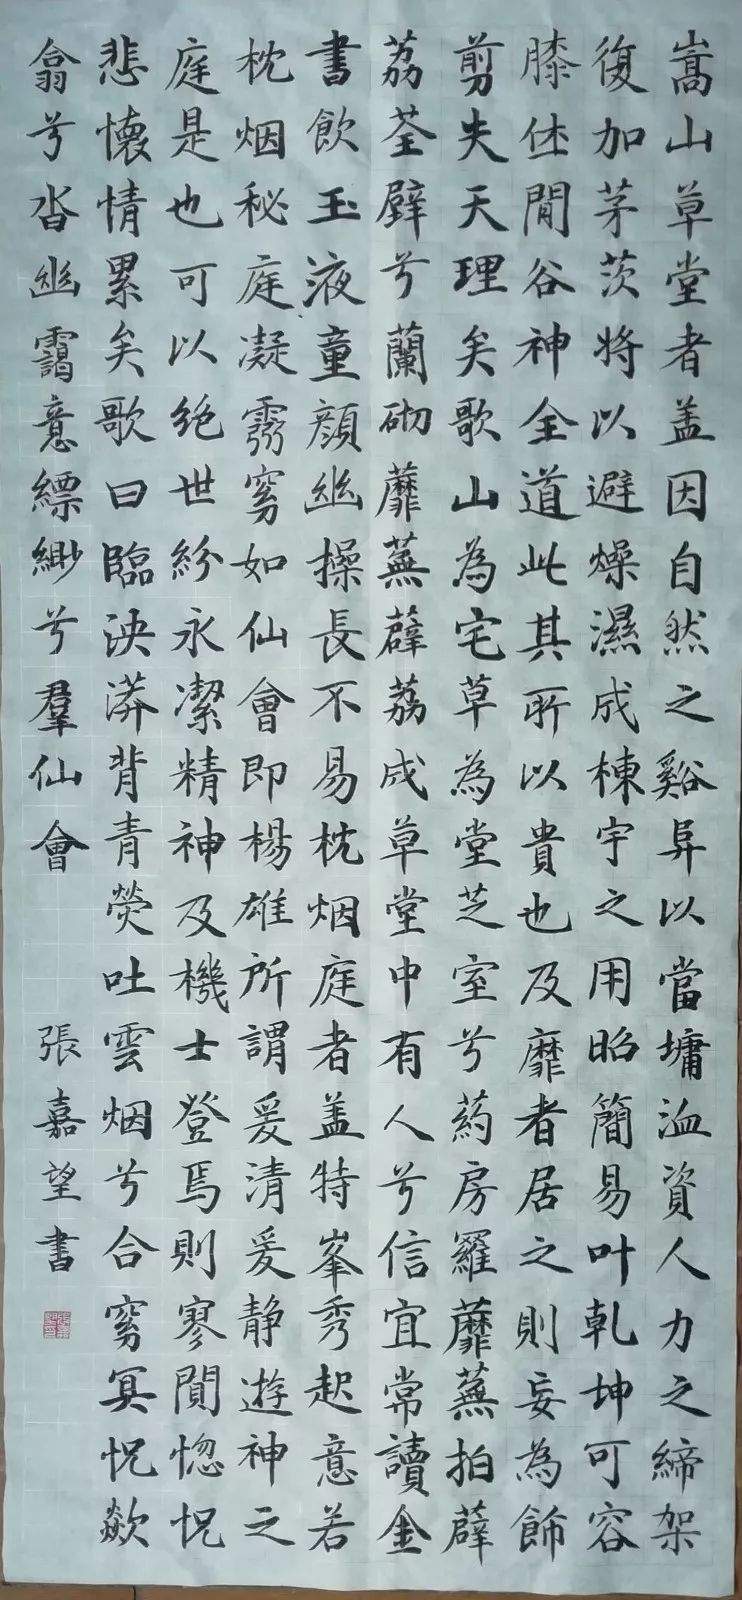 嵩山草堂者盖因自然之谿阜以當墉洫資人力之締架
復加茅茨將以避燥濕成棟宇之用昭簡易叶乾坤可容
膝休閒谷神全道此其所以貴也及靡者居之則妄為飾
剪失天理矣歌山為宅草為堂芝室兮葯房羅蘼蕪拍薜
荔荃壁兮蘭砌蘼蕪薜荔成草堂中有人兮信宜常讀金
書飲玉液童顔幽操長不易枕烟庭者盖特峯秀起意若
枕烟秘庭凝霧窅如仙會即楊雄所謂爰清爰静遊神之
庭是也可以絶世紛永潔精神及機士登焉則寥闃惚怳
悲懷情累矣歌曰臨泱漭背青熒吐雲烟兮合窅冥怳欻
翕兮沓幽靄意縹緲兮羣仙會
張嘉望書